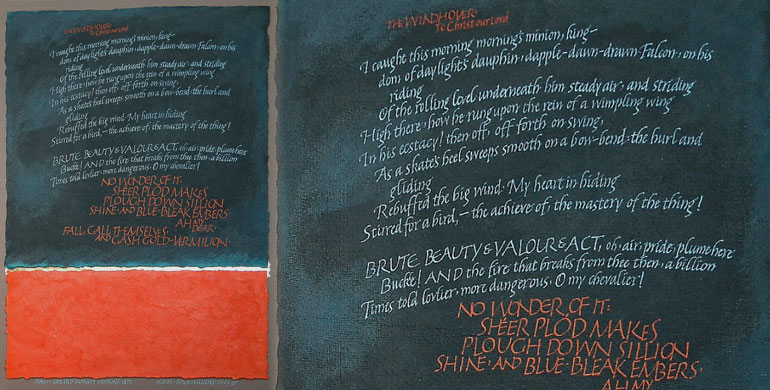 THE WINDHOVER:
To Christ our Lord
I caught this morning morning's minion, king-
dom of daylight's dauphin, dapple-dawn-drawn Falcon, on his
riding
Of the rolling level underneath him steady air, and striding
High there, how he rung upon the rein of a wimpling wing
In his ecstacy! then off, off forth on swing,
As a skate's heel sweeps smooth on a bow-bend: the hurl and
gliding
Rebuffed the big wind. My heart in hiding
Stirred for a bird, – the achieve of, the mastery of the thing!
BRUTE BEAUTY & VALOUR & ACT, oh, air, pride, plume here
Buckle! AND the fire that breaks from thee then, a billion
Times told lovlier, more dangerous, O my chevalier!
NO WONDER OF IT:
SHEER PLOD MAKES
PLOUGH DOWN SILLION
SHINE, AND BLUE-BLEAK EMBERS,
AH MY
DEAR,
FALL, GALL THEMSELVES
AND GASH GOLD-VERMILION.
POEM · GERARD MANLEY HOPKINS 1877
THE WINDHOVER:
To Christ our Lord
I caught this morning morning's minion, king-
dom of daylight's dauphin, dapple-dawn-drawn Falcon, on his
riding
Of the rolling level underneath him steady air, and striding
High there, how he rung upon the rein of a wimpling wing
In his ecstacy! then off, off forth on swing,
As a skate's heel sweeps smooth on a bow-bend: the hurl and
gliding
Rebuffed the big wind. My heart in hiding
Stirred for a bird, – the achieve of, the mastery of the thing!
BRUTE BEAUTY & VALOUR & ACT, oh, air, pride, plume here
Buckle! AND the fire that breaks from thee then, a billion
Times told lovlier, more dangerous, O my chevalier!
NO WONDER OF IT:
SHEER PLOD MAKES
PLOUGH DOWN SILLION
SHINE, AND BLUE-BLEAK EMBERS,
AH MY